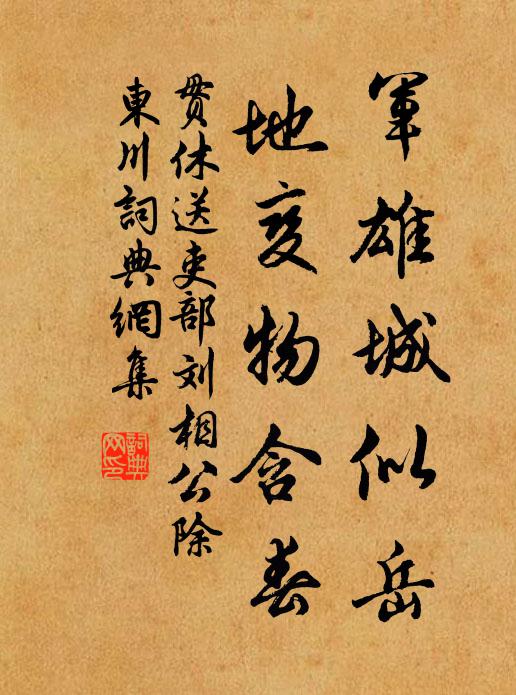 軍雄城似岳
地变物含春
贯休送吏部刘相公除
東川詞典網集
詞典
网印